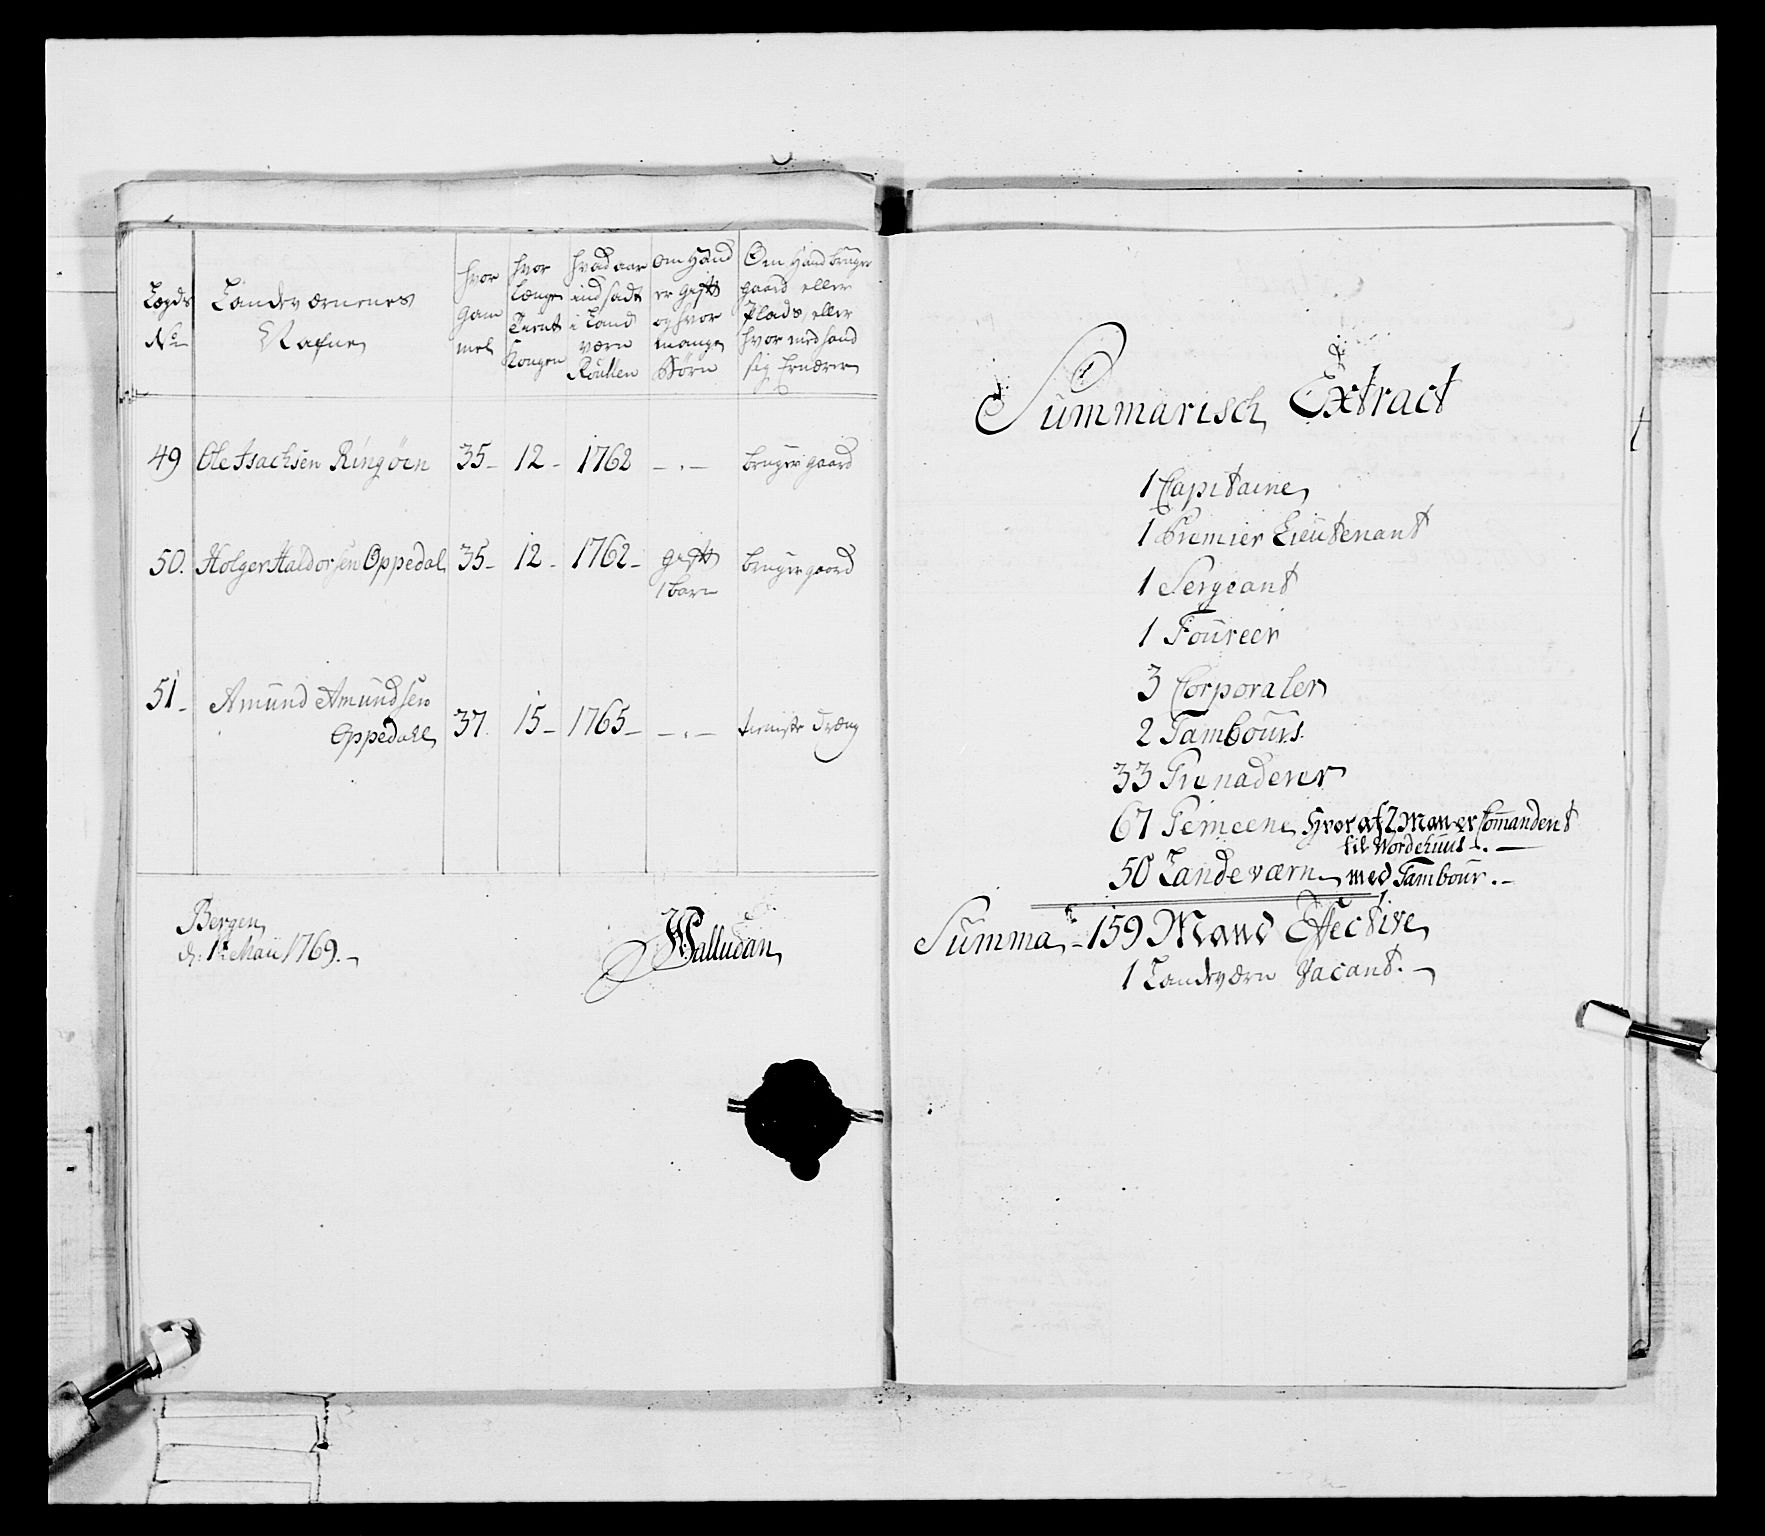 Lægds No
Landeværnenes Nafne
hvor gam mel
hvor længe Tient Kongen
hvad aar indsadt i Land værn Roullen
om Hand er gift og hvor mange Börn
Om Hand bruger gaard eller Plads, eller hvor med hand sig Ernærer
49 Ole Isachsen Ringöen 35- 12- 1762 -.- bruger gaard
50. Holger Haldorsen Oppedal 35- 12- 1762- gift 1 barn bruger gaard
51- Amund Amundsen Oppedahl 37 15- 1765- -.- tieniste Dræng
Bergen
d: 1te Maii 1769.-
Walludan
Summarisch Extract
1 Capitaine
1 Premier Lieutenant
1 Sergeant
1 Foureer
3 Corporaler
2 Tambours.
33 Grenaderer
67 Gemeene hvor af 2 Man er Comandert
til Wordehuus-.-
50 Landeværn med Tambour.-
Summa - 159 Mand Effective
1 Landeværn Vacant.-